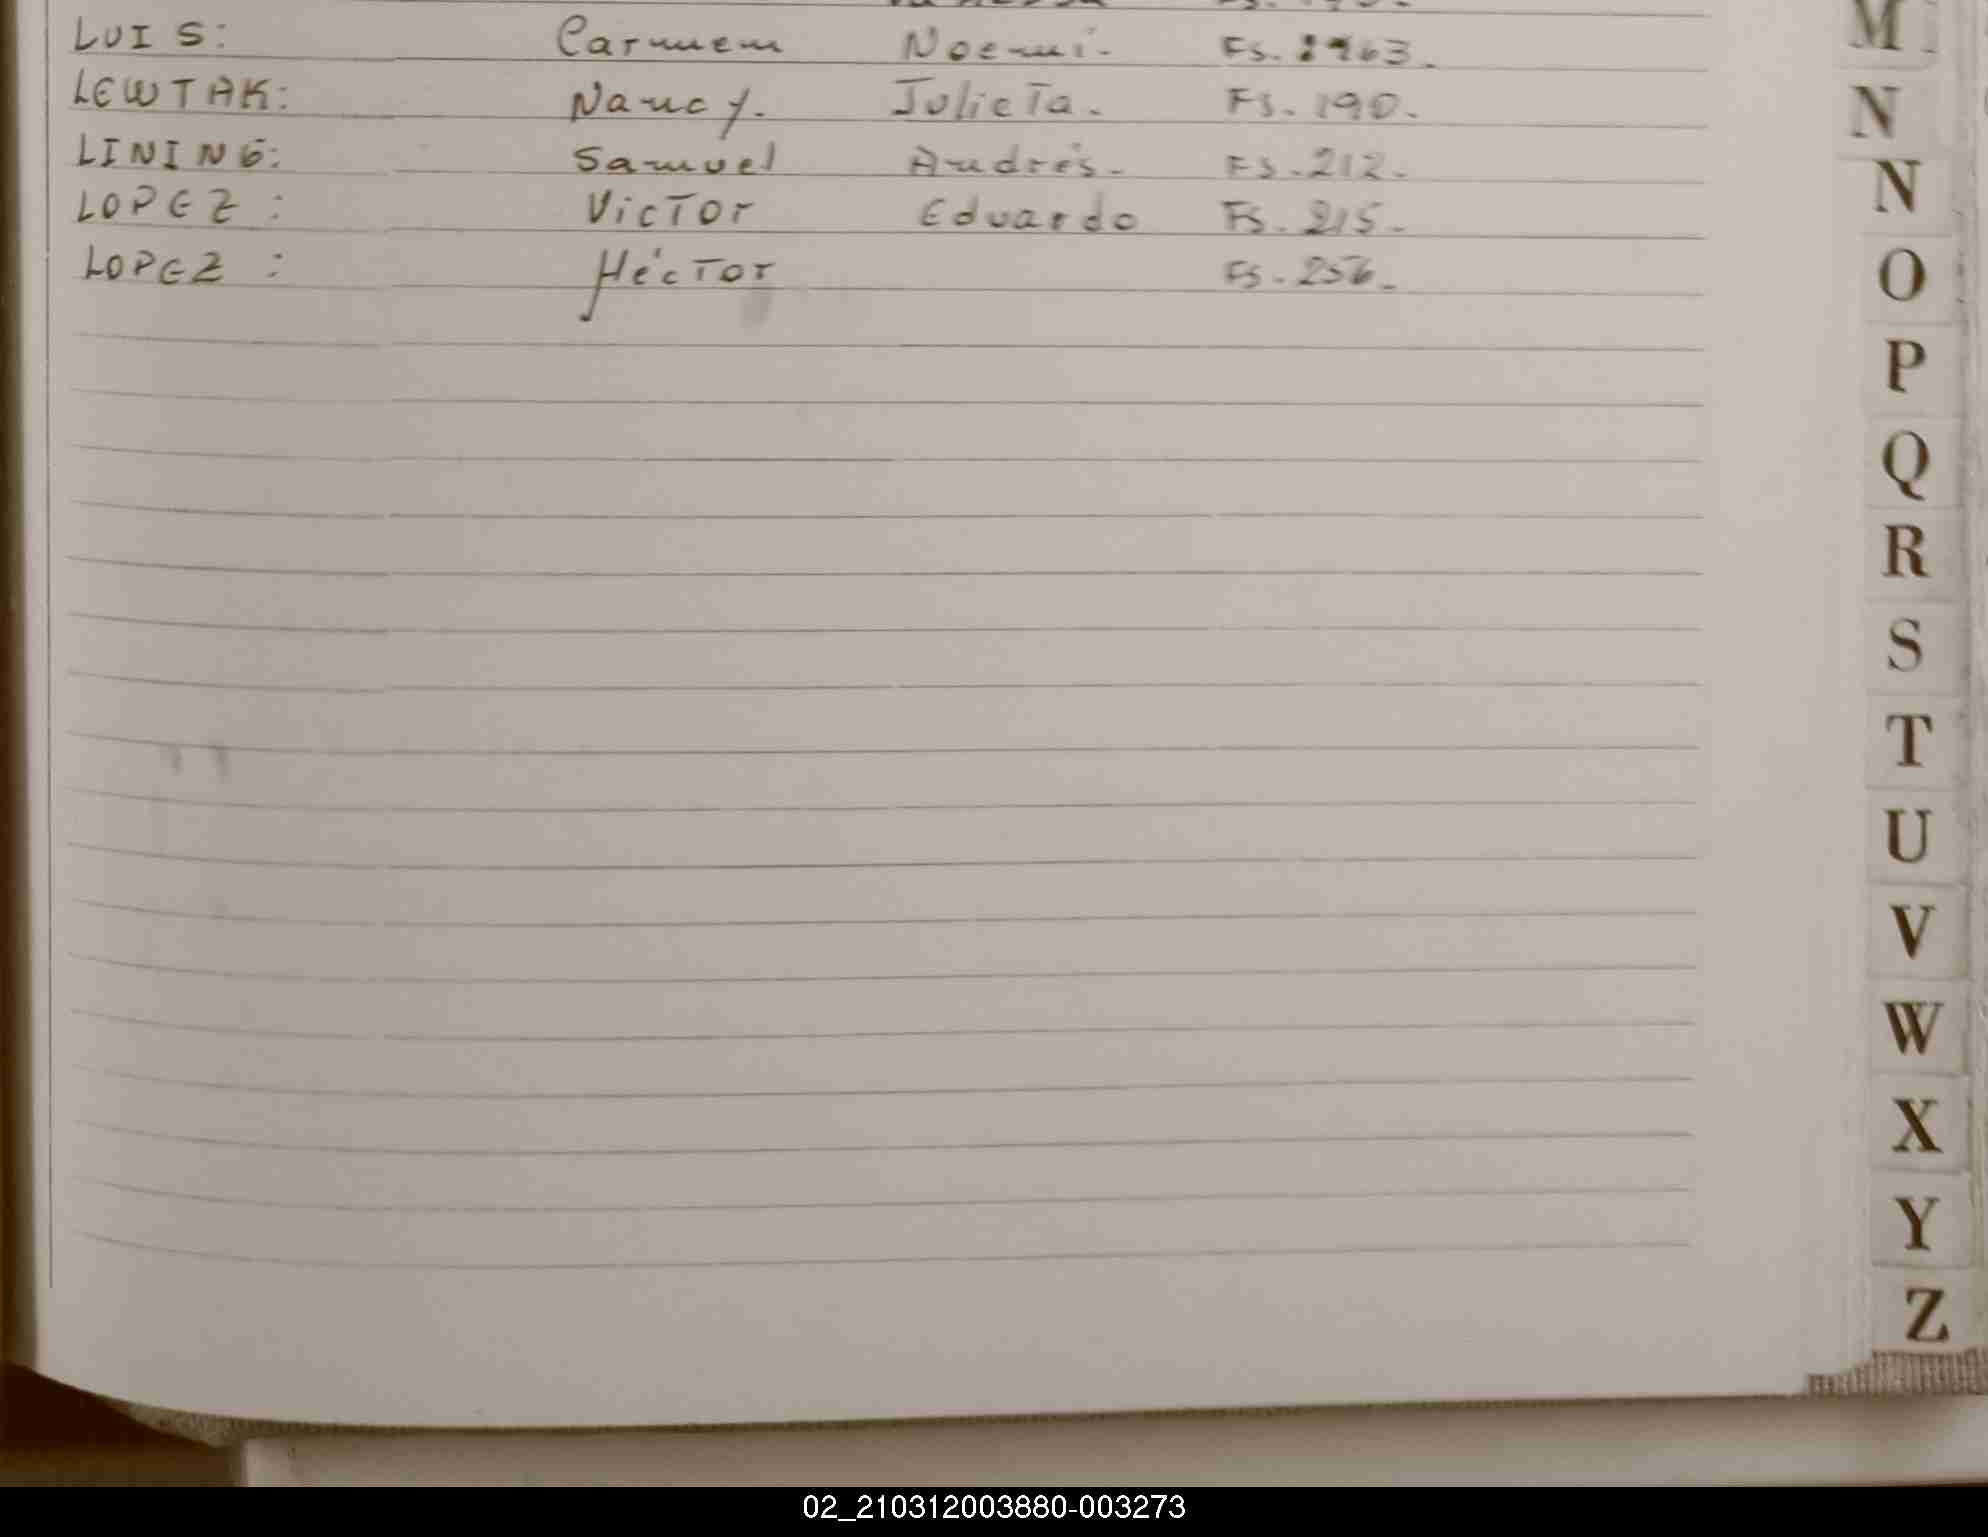 LUIS: Carmem Noemi. Fs.
LEWTAK: Nancy. Julieta. Fs. 190.
LINING: Samuel Andrés. Fs. 212.
LOPEZ: Victor Eduardo Fs. 215.
LOPEZ: Héctor Fs. 256.
M
N
N
O
P
Q
R
S
T
U
V
W
X
Y
Z
02_210312003880-003273